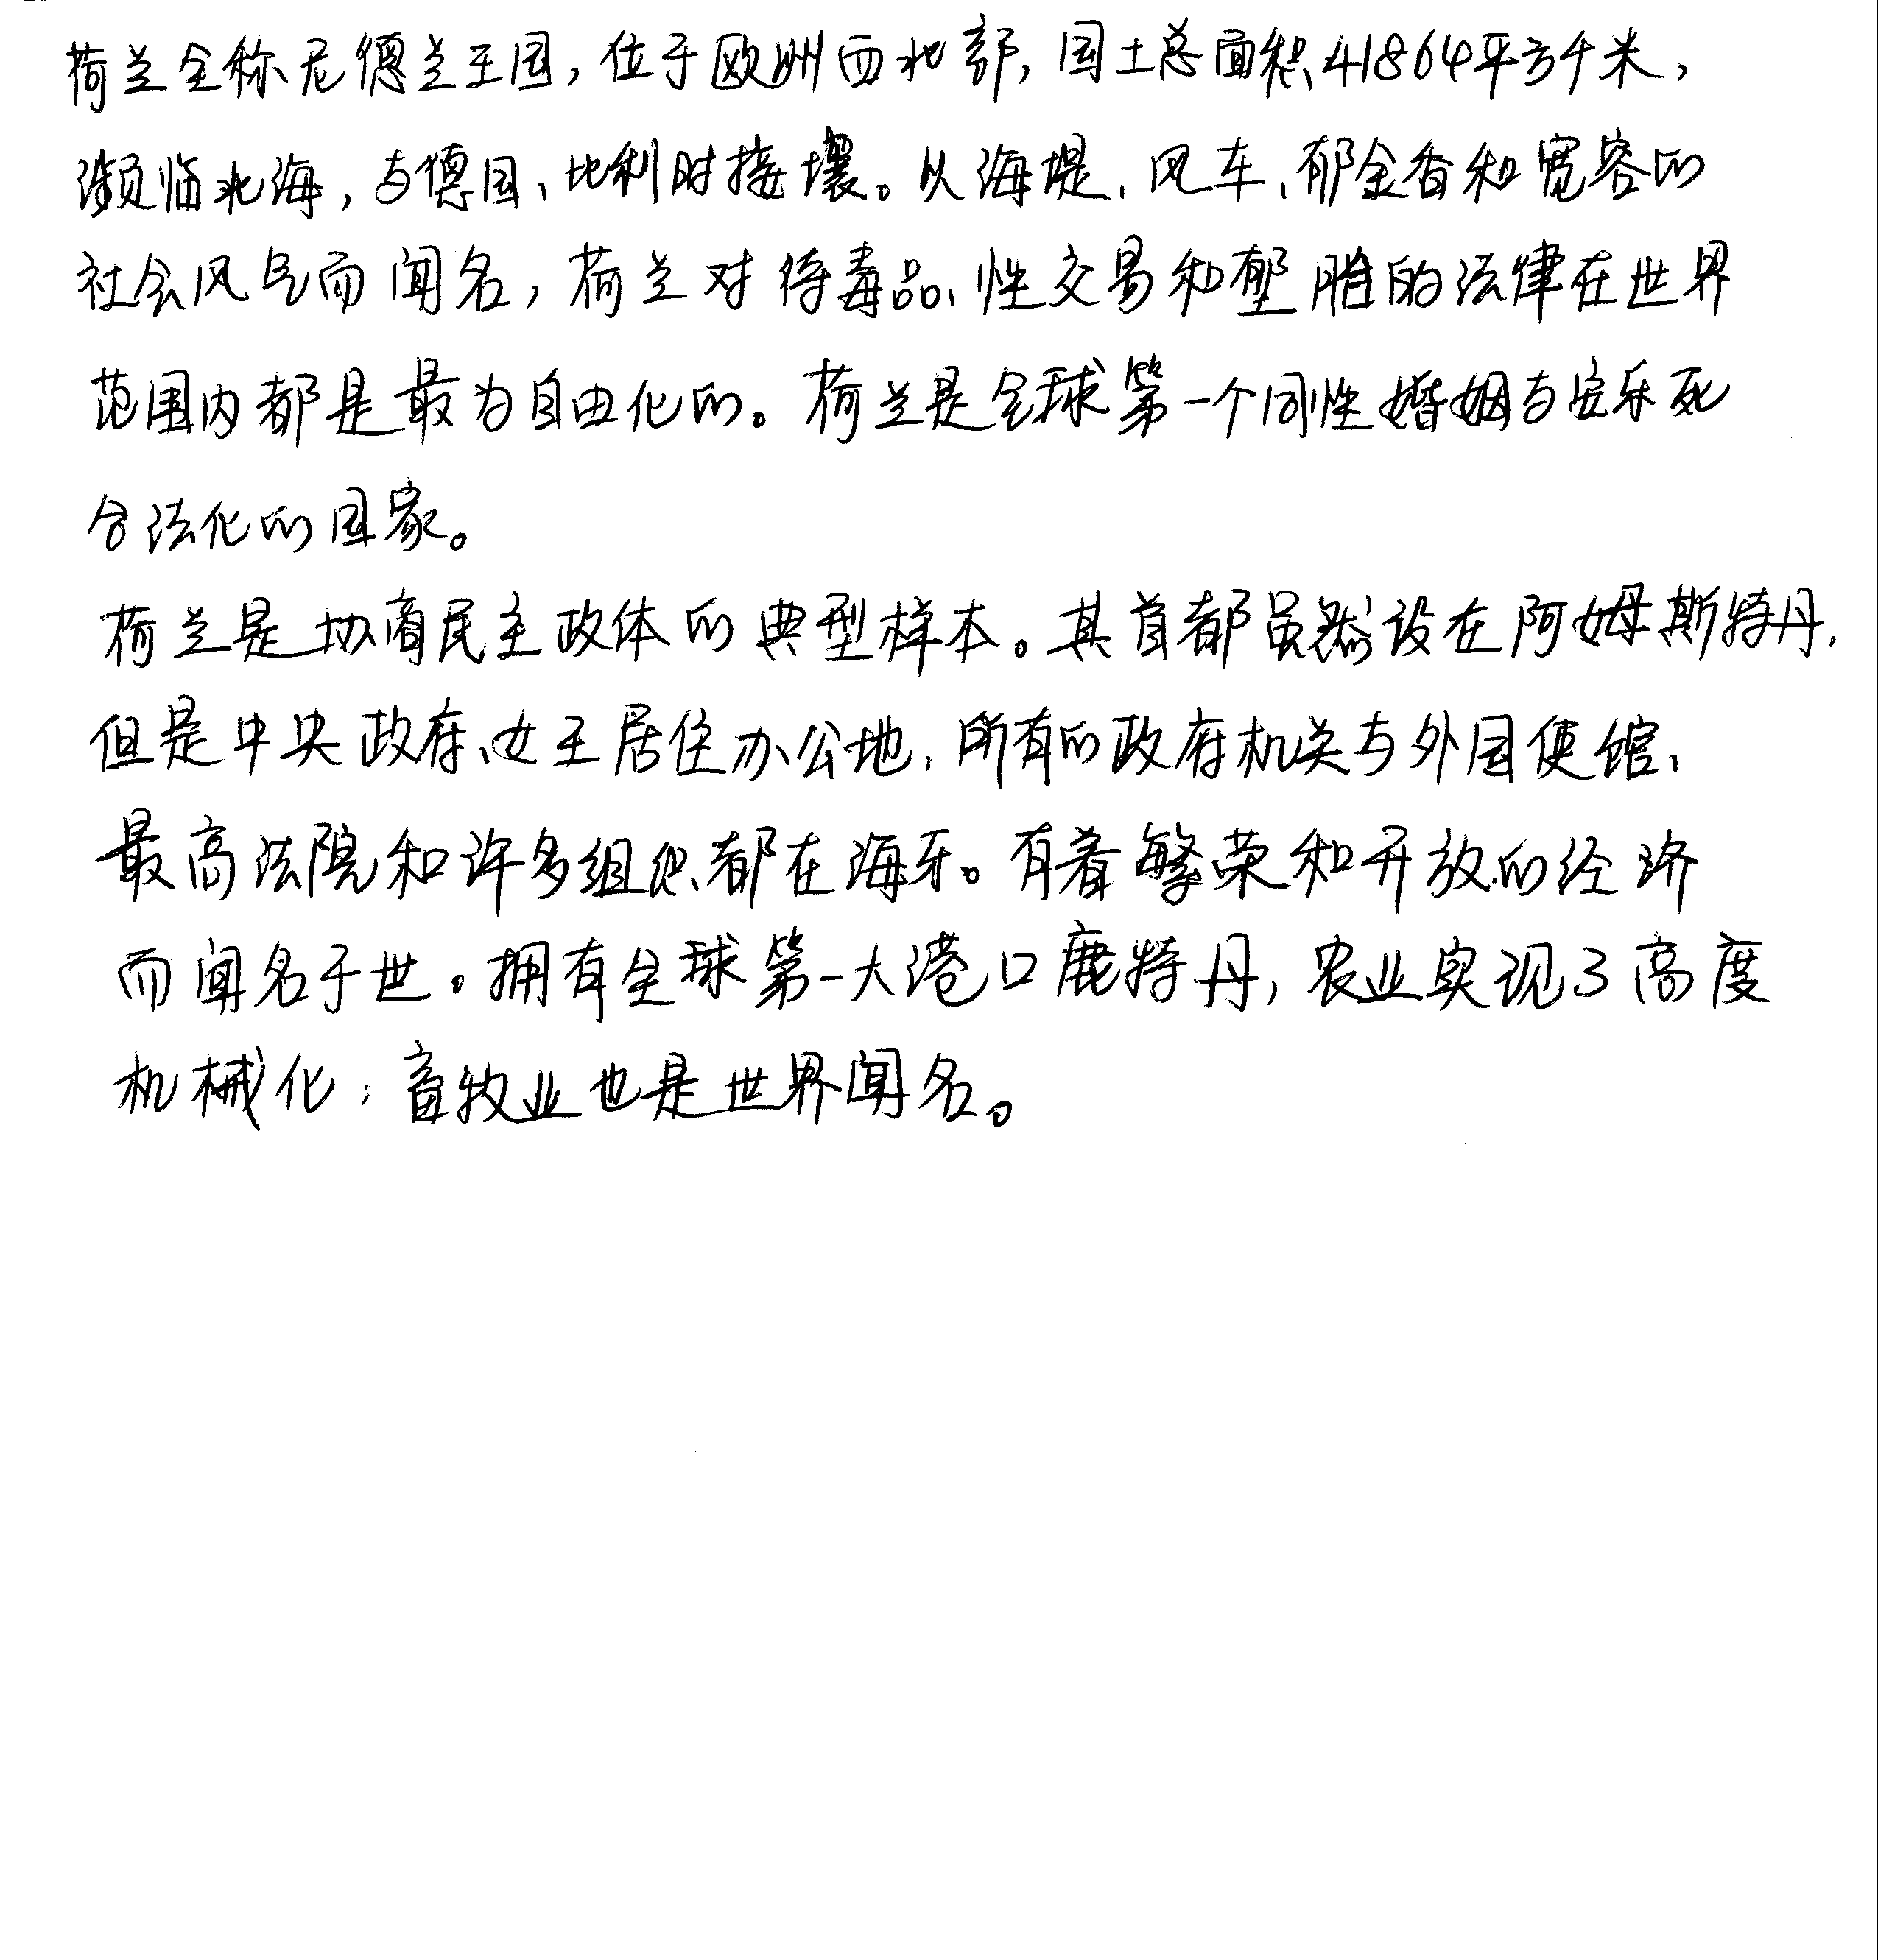 荷兰全称尼德兰王国,位于欧洲西北部,国土总面积41864平方千米,
濒临北海,与德国、比利时接壤。以海堤、风车、郁金香和宽容的
社会风气而闻名,荷兰对待毒品、性交易和堕胎的法律在世界
范围内都是最为自由化的。荷兰是全球第一个同性婚姻与安乐死
合法化的国家。
荷兰是协商民主政体的典型样本。其首都虽然设在阿姆斯特丹,
但是中央政府、女王居住办公地,所有的政府机关与外国使馆、
最高法院和许多组织都在海牙。有着繁荣和开放的经济
而闻名于世。拥有全球第一大港口鹿特丹,农业实现了高度
机械化;畜牧业也是世界闻名。